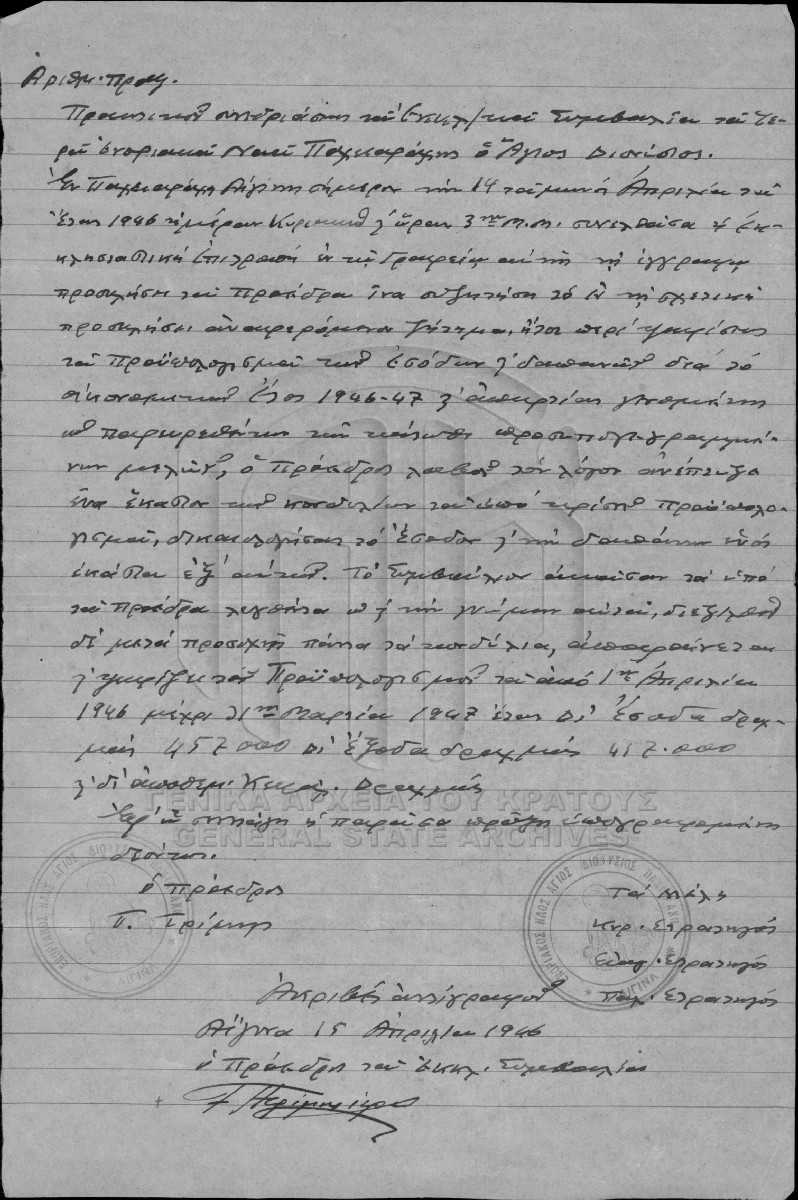 Ἀριθμ. πραξ.
Πρακτικὸν συνεδριάσεως τοῦ Ἐκκλ/κοῦ Συμβουλίου τοῦ Ἱε-
ροῦ Ἐνοριακοῦ Ναοῦ Παχειοράχης ὁ Ἅγιος Διονύσιος.
Ἐν Παχειοράχῃ Αἰγίνης σήμερον τὴν 14 τοῦ μηνὸς Ἀπριλίου τοῦ
ἔτους 1946 ἡμέραν Κυριακὴν καὶ ὥραν 3ην Μ.Μ. συνελθοῦσα ἡ Ἐκ-
κλησιαστικὴ Ἐπιτροπὴ ἐν τῷ Γραφείῳ αὐτῆς τῇ ἐγγράφῳ
προσκλήσει τοῦ Προέδρου ἵνα συζητήσῃ τὸ ἐν τῇ σχετικῇ
προσκλήσει ἀναφερόμενον ζήτημα, ἤτοι περὶ ψηφίσεως
τοῦ Προϋπολογισμοῦ τῶν Ἐσόδων καὶ δαπανῶν διὰ τὸ
οἰκονομικὸν ἔτος 1946-47 καὶ ἀπαρτίας γενομένης
ὡς παρευρεθέντων τῶν κάτωθι προσυπογεγραμμέ-
νων μελῶν, ὁ Πρόεδρος λαβὼν τὸν λόγον ἀνέπτυξε
ἕνα ἕκαστον τῶν κονδυλίων τοῦ ὑπὸ κρίσιν Προϋπολο-
γισμοῦ, δικαιολογήσας τὸ ἔσοδον καὶ τὴν δαπάνην ἑνὸς
ἑκάστου ἐξ αὐτῶν. Τὸ Συμβούλιον ἀκοῦσαν τὰ ὑπὸ
τοῦ Προέδρου λεχθέντα ὡς καὶ τὴν γνώμην αὐτοῦ, διεξελθὸν
δὲ μετὰ προσοχῆς πάντα τὰ κονδύλια, ἀποφαίνεται
καὶ ψηφίζει τὸν Προϋπολογισμὸν τοῦ ἀπὸ 1ης Ἀπριλίου
1946 μέχρι 31ην Μαρτίου 1947 ἔτους δι' Ἔσοδα δραχ-
μὰς 457.000 δι' ἔξοδα δραχμὰς 457.000
καὶ δι' ἀποθεμ. Κεφάλ. Δραχμὰς
ΓΕΝΙΚΑ ΑΡΧΕΙΑ ΤΟΥ ΚΡΑΤΟΥΣ
Ἐφ' ᾧ συνετάγη ἡ παροῦσα πρᾶξις ὑπογραφομένη
GENERAL STATE ARCHIVES
οὕτως.
Ὁ Πρόεδρος
Τὰ Μέλη
Κυρ. Στρατηγός
Στρατηγός
Παν. Στρατηγός
ΕΝΟΡΙΑΚΟΣ ΝΑΟΣ ΑΓΙΟΣ ΔΙΟΝΥΣΙΟΣ ΑΙΓΙΝΑ
ΕΝΟΡΙΑΚΟΣ ΝΑΟΣ ΑΓΙΟΣ ΔΙΟΝΥΣΙΟΣ ΑΙΓΙΝΑ
Ἀκριβὲς ἀντίγραφον
Αἴγινα 15 Ἀπριλίου 1946
Ὁ Πρόεδρος τοῦ Ἐκκλ. Συμβουλίου